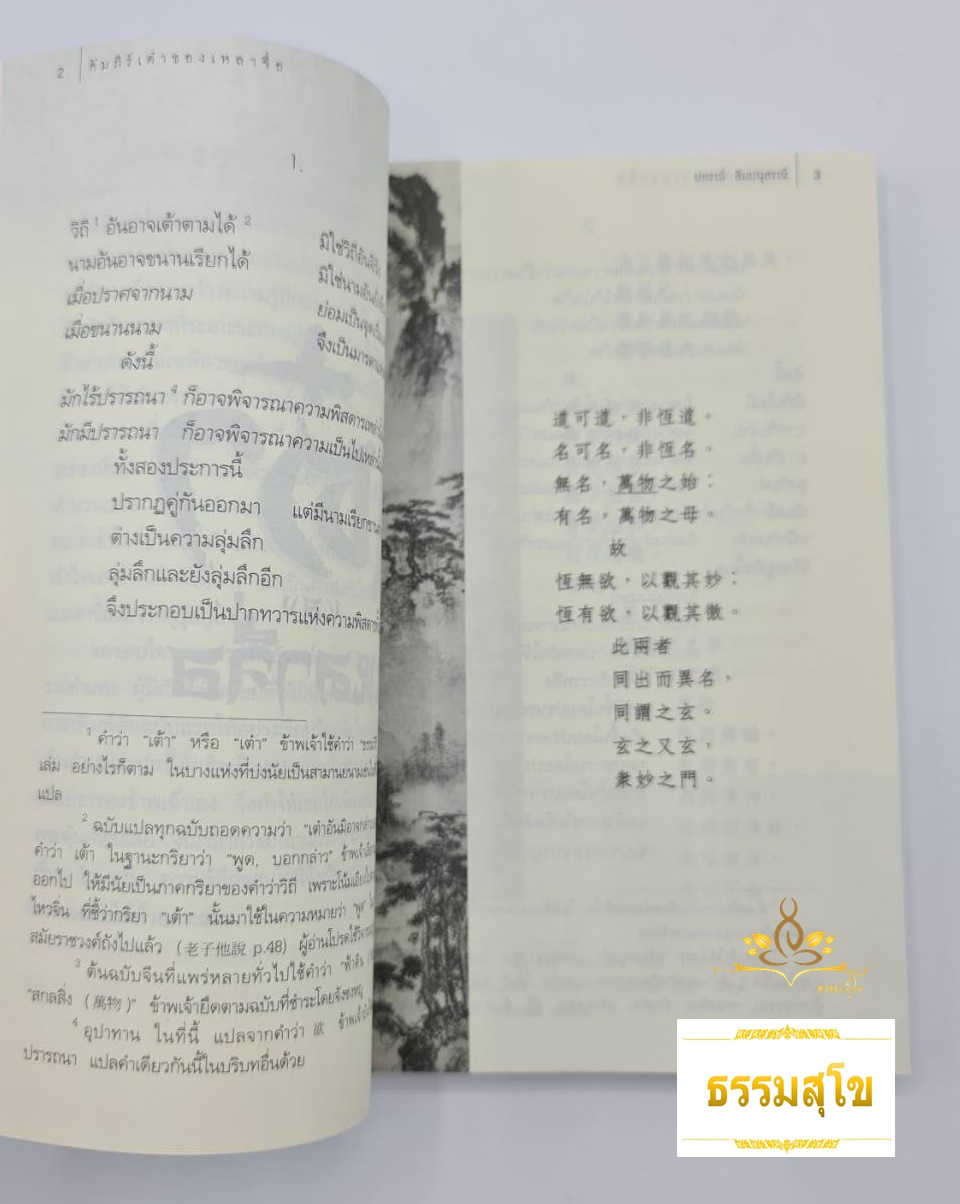 2 คัมภีร์เต๋าของเหลาจื่อ
1.
วิถี 1 อันอาจเต้าตามได้ 2 มิใช่วิถีอัน
นามอันอาจขนานเรียกได้ มิใช่นามอัน
เมื่อปราศจากนาม ย่อมเป็น
เมื่อขนานนาม จึงเป็นมารดา
ดังนี้
มักไร้ปรารถนา 4 ก็อาจพิจารณาความพิสดาร
มักมีปรารถนา ก็อาจพิจารณาความเป็นไป
ทั้งสองประการนี้
ปรากฏคู่กันออกมา แต่มีนามเรียกขาน
ต่างเป็นความลุ่มลึก
ลุ่มลึกและยังลุ่มลึกอีก
จึงประกอบเป็นปากทวารแห่งความพิสดาร
1 คำว่า "เต้า" หรือ "เต๋า" ข้าพเจ้าใช้คำว่า
เล่ม อย่างไรก็ตาม ในบางแห่งที่บ่งนัยเป็นสามานยนาม
แปล
2 ฉบับแปลทุกฉบับถอดความว่า "เต๋าอันมิอาจ
คำว่า เต้า ในฐานะกริยาว่า "พูด, บอกกล่าว" ข้าพเจ้า
ออกไป ให้มีนัยเป็นภาคกริยาของคำว่าวิถี เพราะโน้มเอียง
ไหวจิ่น ที่ชี้ว่ากริยา "เต้า" นั้นมาใช้ในความหมายว่า "พูด"
สมัยราชวงศ์ถังไปแล้ว (老子他說 p.48) ผู้อ่านโปรดใช้
3 ต้นฉบับจีนที่แพร่หลายทั่วไปใช้คำว่า "ฟ้าดิน
"สกลสิ่ง (萬物)" ข้าพเจ้ายึดตามฉบับที่ชำระโดย
4 อุปาทาน ในที่นี้ แปลจากคำว่า 欲 ข้าพเจ้า
ปรารถนา แปลคำเดียวกันนี้ในบริบทอื่นด้วย
ปกรณ์ ลิมปนุสรณ์ 3
道可道，非恆道。
名可名，非恆名。
無名，萬物之始；
有名，萬物之母。
故
恆無欲，以觀其妙；
恆有欲，以觀其徼。
此兩者
同出而異名，
同謂之玄。
玄之又玄，
衆妙之門。
ธรรมสุโข